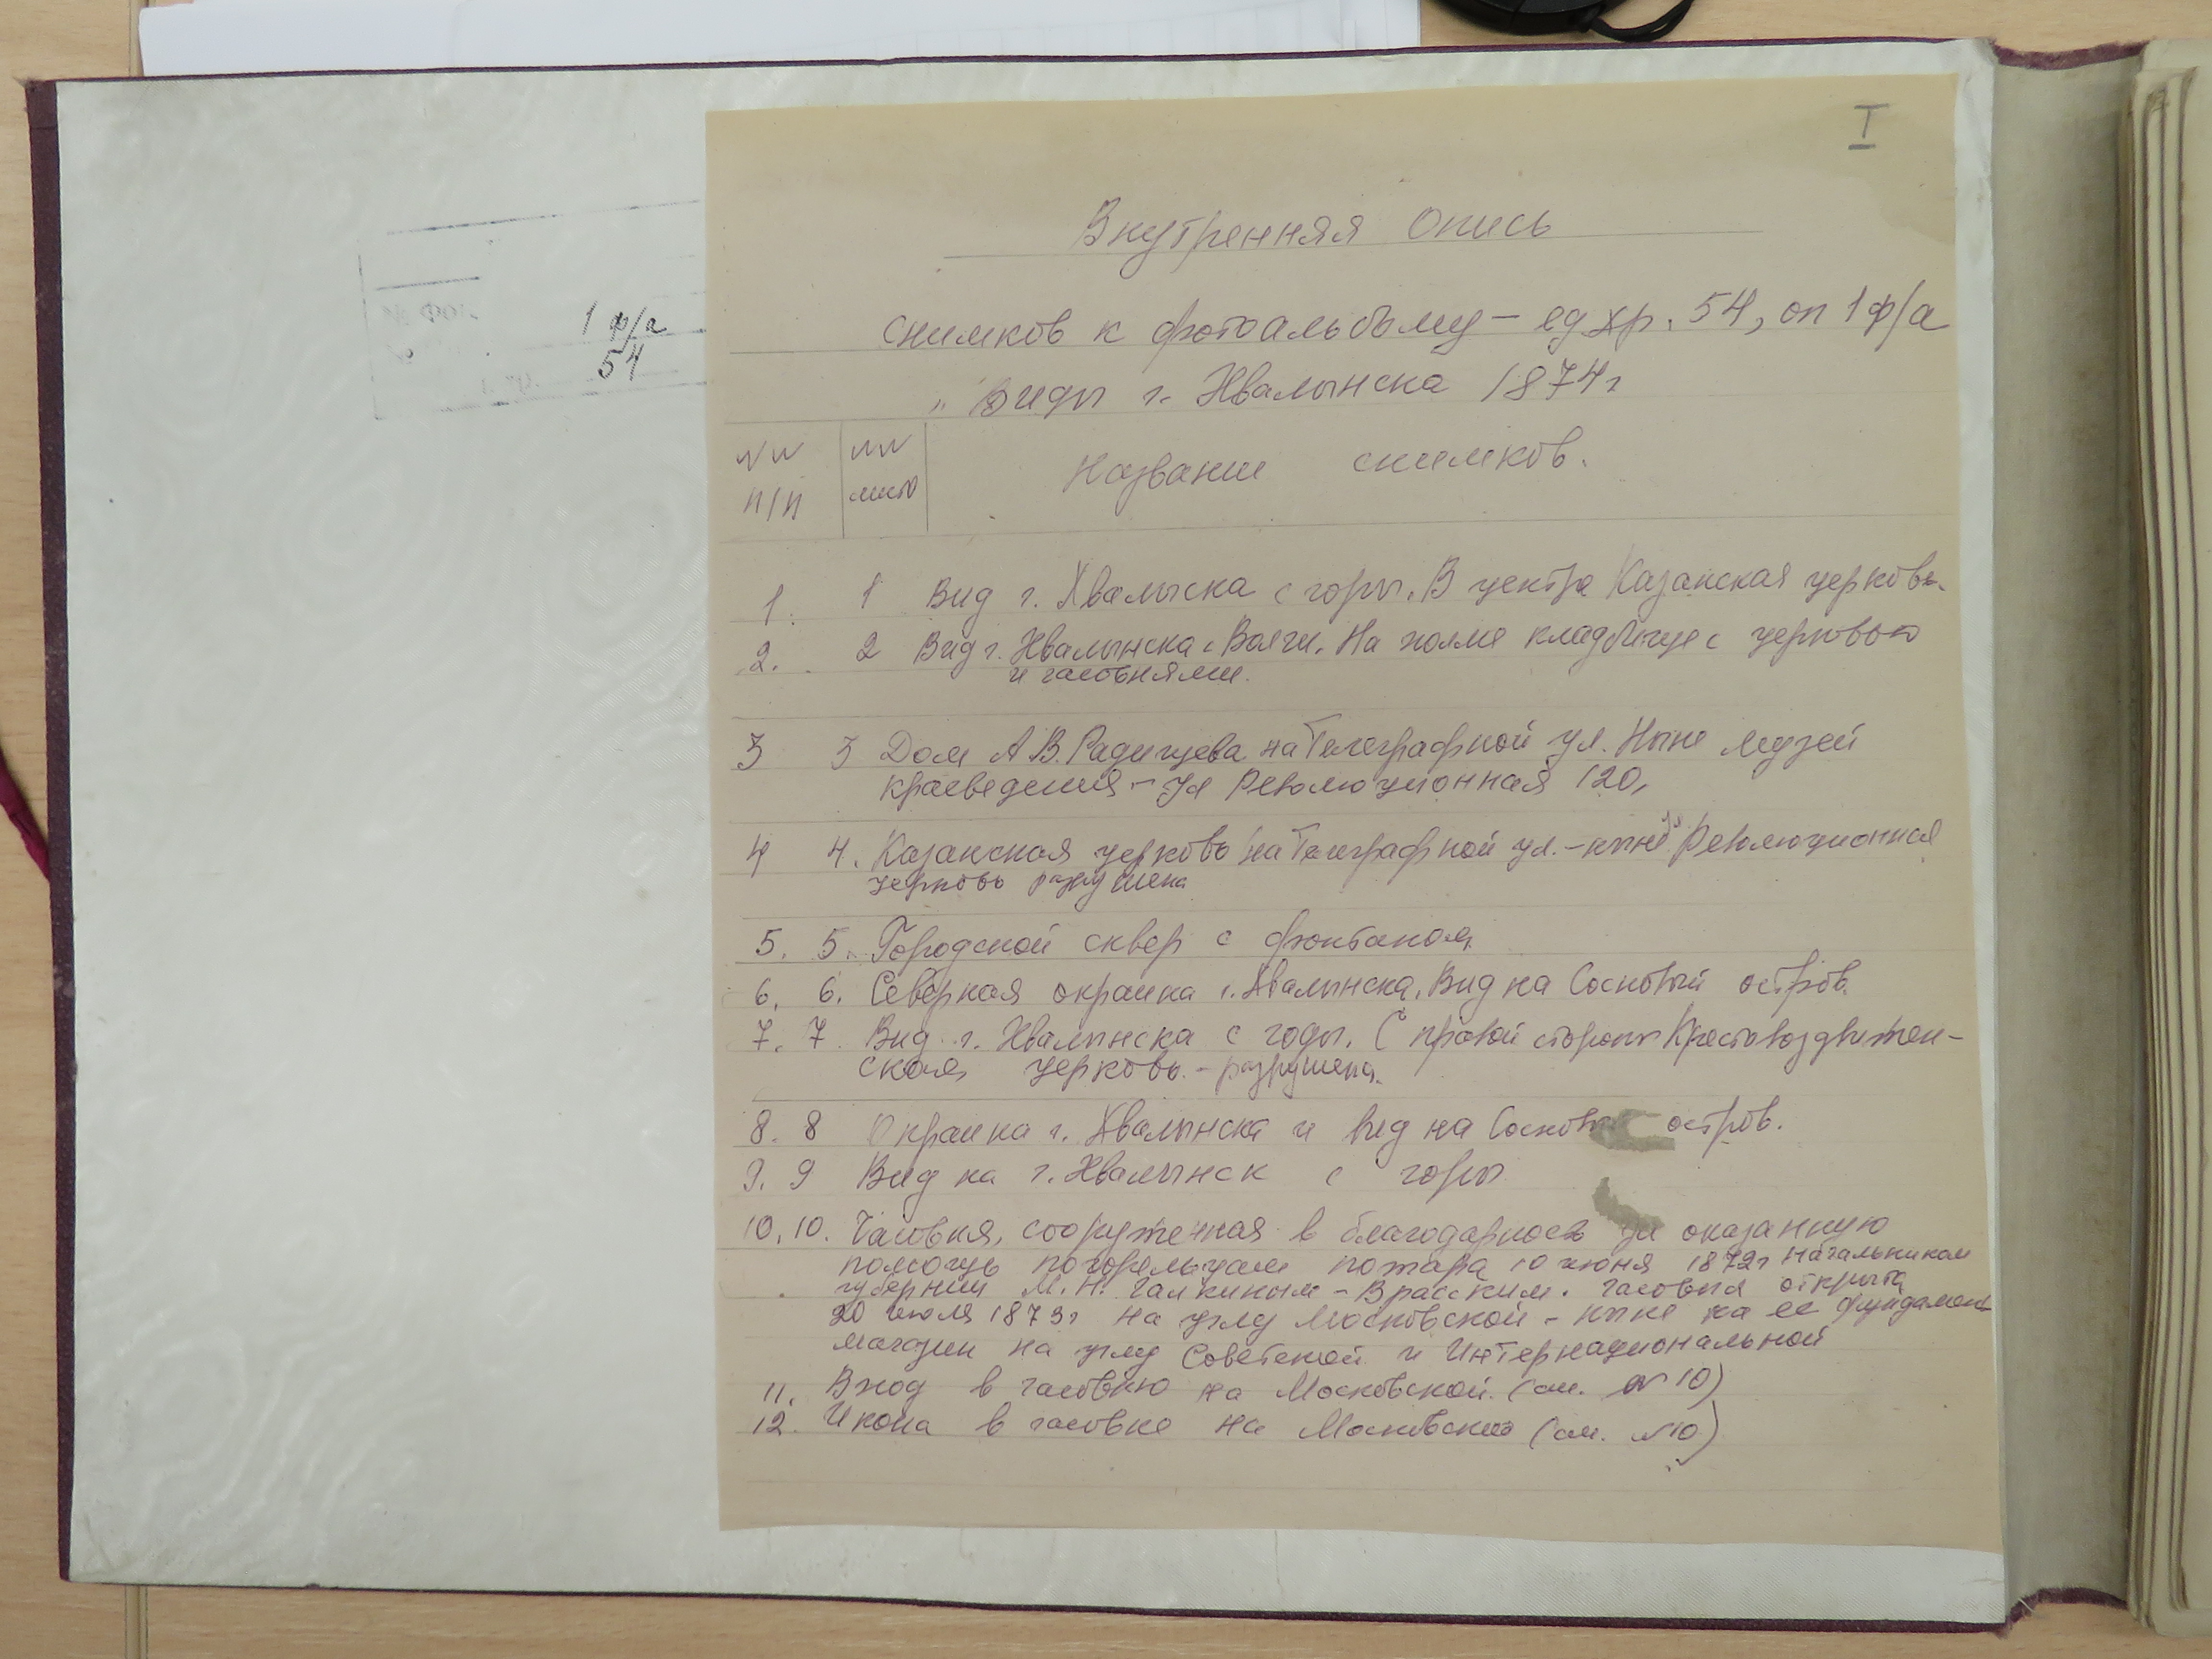 I
1 ф/а
54
Внутренняя Опись
снимков к фотоальбому – ед хр. 54, оп 1 ф/а
" Виды г. Хвалынска 1874г
NN NN
п/п листо
Название снимков.
1. 1 Вид г. Хвалыска с горы. В центре Казанская церковь.
2. 2 Вид г. Хвалынска с Волги. На холме кладбище с церковью
и часовнями.
3 3 Дом А В. Радищева на Телеграфной ул. Ныне музей
краеведения – Ул Революционная 120,
4 4. Казанская церковь на Телеграфной ул. – ныне ул Революционная
церковь разрушена
5. 5. Городской сквер с фонтаном
6. 6. Северная окраина г. Хвалынска. Вид на Сосновый остров.
7. 7. Вид г. Хвалынска с годы. С правой стороны Крестовоздвижен-
ская церковь. – разрушена.
8. 8 Окраина г. Хвалынска и вид на остров.
9. 9 Вид на г. Хвалынск с горы
10. 10. Часовня, сооруженная в благодарность за оказанную
помощь погорельцам пожара 10 июня 1872г начальником
губернии М. Н. Галкиным – Врасским. Часовня открыта
20 июля 1873г на углу Московской – ныне на ее фундамент
магазин на углу Советской и Интернациональной
11. Вход в часовню на Московской. (см. № 10)
12. Икона в часовне на Московской (см. №10)